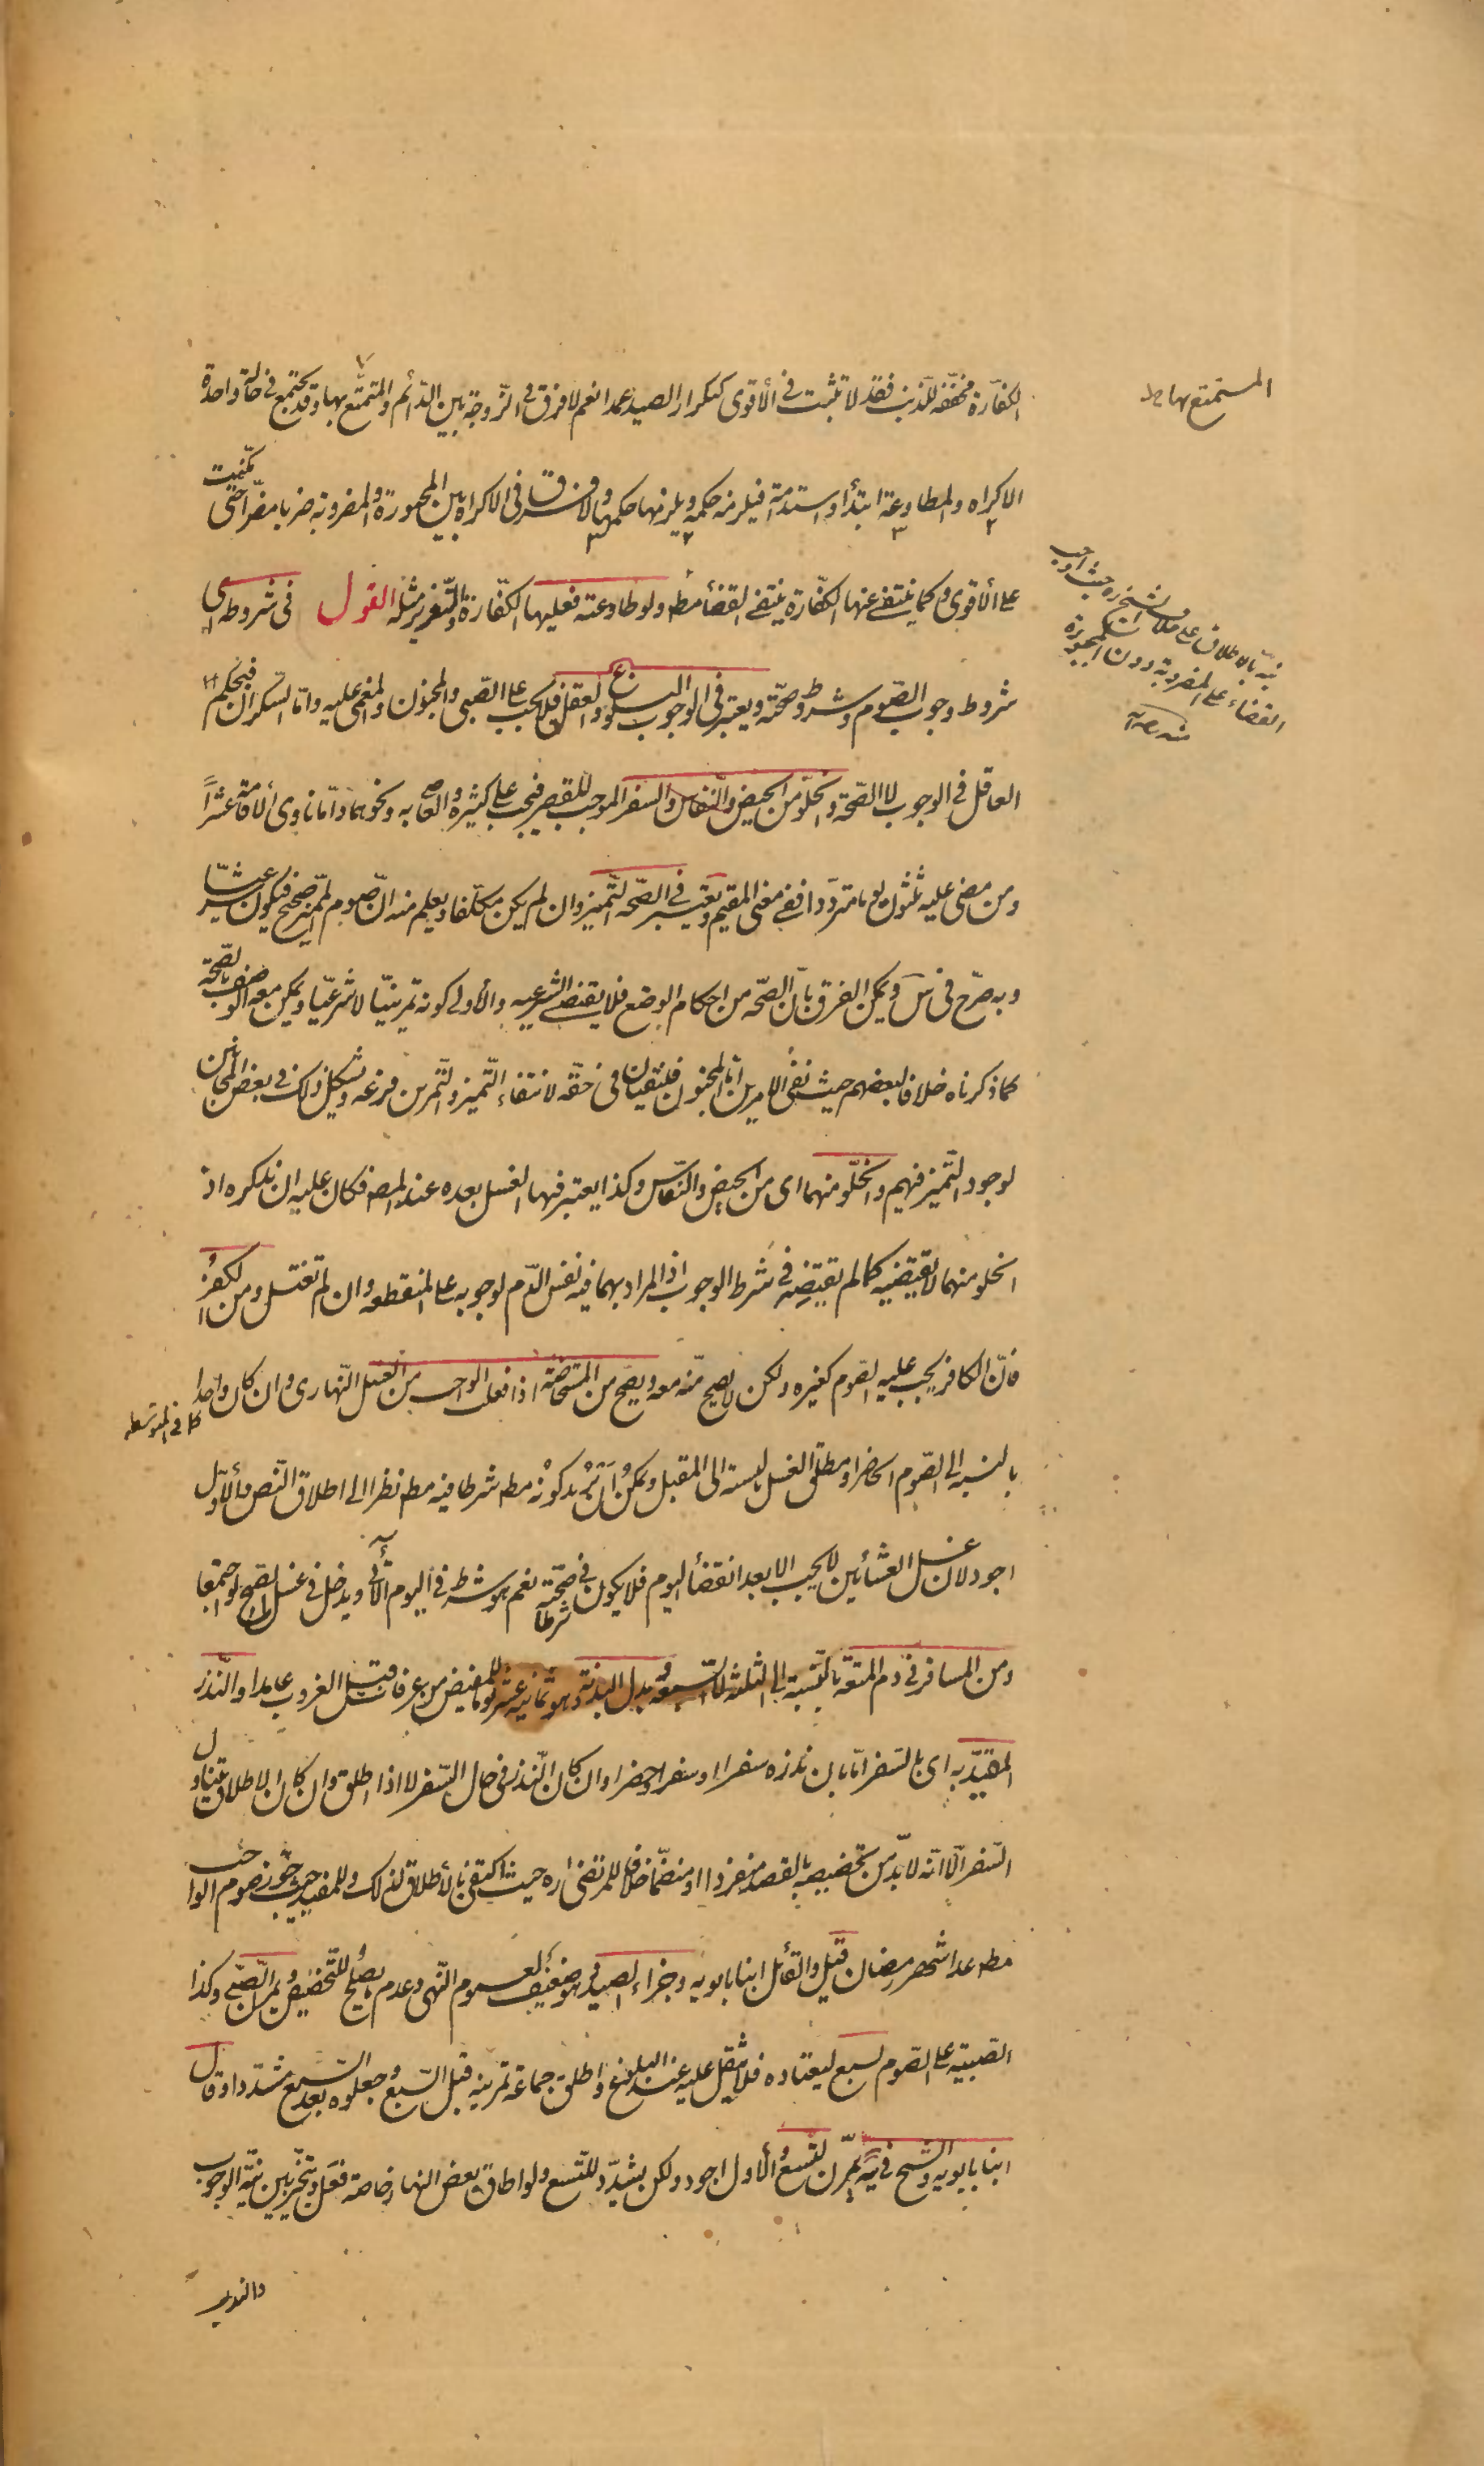 الكفّارة مخفّفه للذنب فقد لا تثبت في الأقوى كتكرار الصيد عمدا نعم لا فرق في الزّوجة بين الدّائم والمتمتّع بها وقد يجتمع في حالة واحدة
المستمتع بها خ ل
الاكراه والمطاوعة ابتدأ واستدامة فيلزمه حكمه ويلزمها حكمها ولا فرق في الاكراه بين المجبورة والمضروبة ضربا مضرّا حتى مكّنت
على الأقوى وكما ينتفى عنها الكفّارة ينتفى القضأ مطه ولو طاوعته فعليها الكفّارة والتّعزير مثله القول فى شروطه اى
نبّه بالاطلاق على خلاف الشيخ ره حيث اوجب
القضاء على المضروبة دون المجبورة
منه
شروط وجوب الصّوم وشروط صحّته ويعتبر فى الوجوب البلوغ والعقل فلا يجب على الصّبى والمجنون والمغمى عليه وامّا السّكران فبحكم
العاقل في الوجوب لا الصّحة والخلوّ من الحيض والنّفاس والسفر الموجب للقصر فيجب على كثيره والعاصى به ونحوهما وامّا ناوى الأقامة عشراً
ومن مضى عليه ثلثون يوما متردّدا ففى معنى المقيم ويعتبر في الصّحه التّميز وان لم يكن مكلّفا ويعلم منه انّ صوم المميّز صحيح فيكون شرعيّا
وبه صرّح فى س ويمكن الفرق بانّ الصّحه من احكام الوضع فلا يقتضى الشرعيه والأولى كونه تمرينيّا لا شرعيّا ويمكن معه الوصف بالصّحّة
كما ذكرناه خلافا لبعضهم حيث نفى الامرين امّا المجنون فينتفيان فى حقّه لانتفاء التّميز والتّمرين فرعه ويشكل ذلك فى بعض المجانين
لوجود التّميز فيهم والخلّو منهما اى من الحيض والنّفاس وكذا يعتبر فيها الغسل بعده عند المص فكان عليه ان يذكره اذ
الخلو منهما لا يقتضيه كما لم يقتضِه فى شرط الوجوب اذ المراد بهما فيه نفس الدّم لوجوبه على المنقطعه وان لم تغتسل ومن الكفر
فانّ الكافر يجب عليه الصّوم كغيره ولكن لا يصح منّه معه ويصح من المستحاضة اذا فعلت الواجب من الغسل النّهارى وان كان واحدا
كما في المتوسطه
بالنسبه الى الصّوم الحاضر او مطلق الغسل بالنسبه الى المقبل ويمكن ان يريد كونه مطه شرطا فيه مطه نظرا الى اطلاق النّص والأوّل
اجود لان غسل العشأئين لا يجب الا بعد انقضأ اليوم فلا يكون شرطا في صحّته نعم هو شرط في اليوم الأتى ويدخل في غسل الصّبح لو اجتمعا
ومن المسافر في دم المتعة بالنّسبة الى الثلثه لا السّبعة وبدل البدنة وهو ثمانيه عشر يوما للمفيض من عرفات قبل الغروب عامدا والنّذر
المقيّد به اى بالسّفر امّا بان نذره سفرا او سفرا وحضرا وان كان النّذر فى حال السّفر لا اذا اطلق وان كان الاطلاق يتناول
السّفر الّا انّه لا بدّ من تخصيصه بالقصد منفردا او منضمّا خلافا للمرتضى ره حيث اكتفى بالأطلاق لذلك وللمفيد حيث جوّز صوم الواجب
مطه عدا شهر رمضان قيل والقائل ابنا بابويه وجزاء الصيد وهو ضعيف لعموم النّهى وعدم ما يصلح للتّخصيص ويمرّن الصّبى وكذا
الصّبيّه على الصّوم لسبع ليعتاده فلا يثقل عليه عند البلوغ واطلق جماعة تمرينه قبل السّبع وجعلوه بعد السّبع مشدّدا وقال
ابنا بابويه والشّيخ فى يه يمرّن لتسع والأول اجود ولكن يشدّد للتّسع ولو اطاق بعض النهار خاصة فعل ويتخيّر بين نيّة الوجوب
والندب